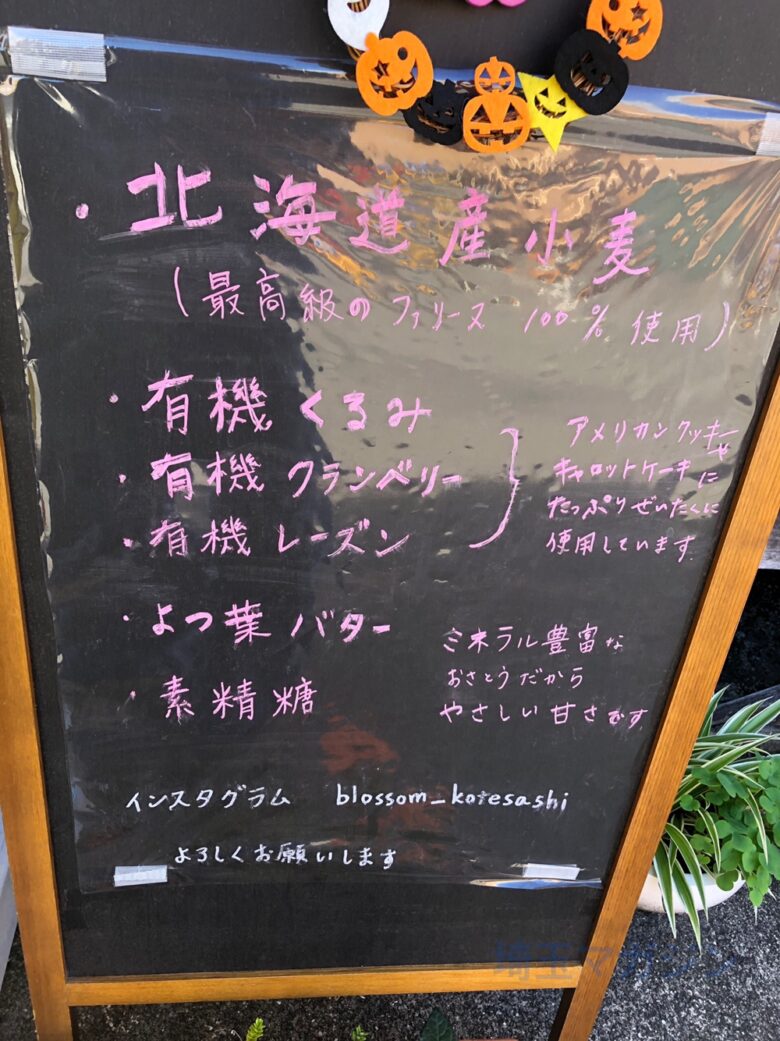 ・北海道産小麦
(最高級のファリーヌ 100% 使用)
・有機くるみ
・有機クランベリー
・有機レーズン
アメリカンクッキーや
キャロットケーキに
たっぷりぜいたくに
使用しています
・よつ葉バター
・素精糖
ミネラル豊富な
おさとうだから
やさしい甘さです
インスタグラム blossom_kotesashi
よろしくお願いします
埼玉マガジン